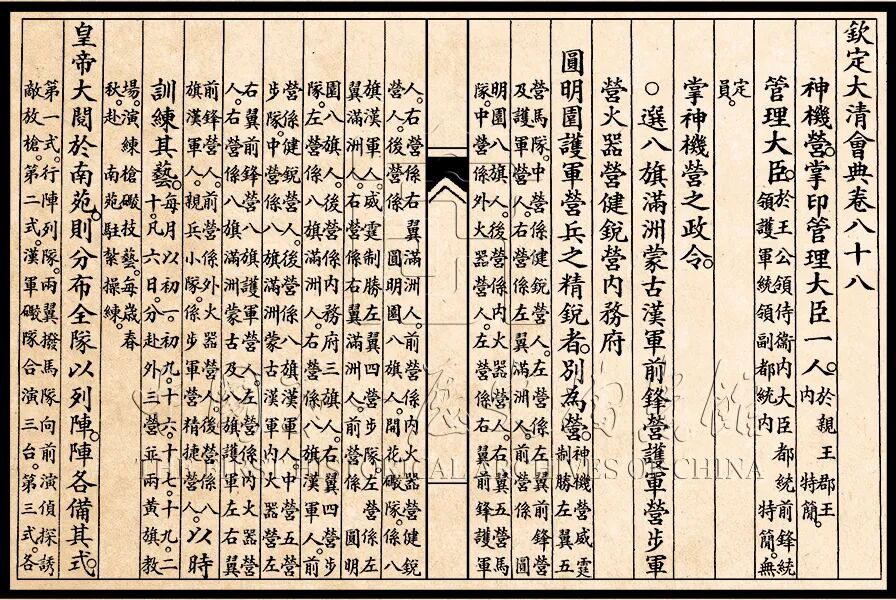 欽定大清會典卷八十八
神機營。掌印管理大臣一人。
於親王郡王
內 特簡。
管理大臣。
於王公領侍衞內大臣都統前鋒統
領護軍統領副都統內 特簡。無
定
員。
掌神機營之政令。
○選八旗滿洲蒙古漢軍前鋒營護軍營步軍
營火器營健銳營內務府
圓明園護軍營兵之精銳者。別為營。
神機營威霆
制勝左翼五
營馬隊。中營係健銳營人。左營係左翼前鋒營
及護軍營人。右營係左翼滿洲人。前營係 圓
明園八旗人。後營係內火器營人。右翼五營馬
隊。中營係外火器營人。左營係右翼前鋒護軍
營人。右營係右翼滿洲人。前營係內火器營健銳
營人。後營係 圓明園八旗人。開花礮隊。係八
旗漢軍人。威霆制勝左翼四營步隊。左營係左
翼滿洲人。右營係右翼滿洲人。前營係 圓明
園八旗人。後營係內務府三旗人。右翼四營步
隊。左營係八旗滿洲人。右營係八旗漢軍人。前
營係健銳營人。後營係八旗漢軍人中營五營
步隊。中營係八旗滿洲蒙古漢軍內火器營左
右翼前鋒營八旗護軍營人。左營係內火器營
人。右營係八旗滿洲蒙古及八旗護軍左右翼
前鋒營人。前營係外火器營人。後營係八
旗漢軍人。親兵小隊。係步軍營精捷營人。
以時
訓練其藝。
每月以初一初九。十六。十七。十九。二
十。凡六日。分赴外三營並兩黃旗教
場。演練槍礮技藝。每歲春
秋。赴 南苑駐紮操練。
皇帝大閱於南苑。則分布全隊以列陣。陣各備其式。
第一式。行陣列隊。兩翼撥馬隊向前演偵探誘
敵放槍。第二式。漢軍礮隊合演三台。第三式。各
THE FIRST HISTORICAL ARCHIVES OF CHINA